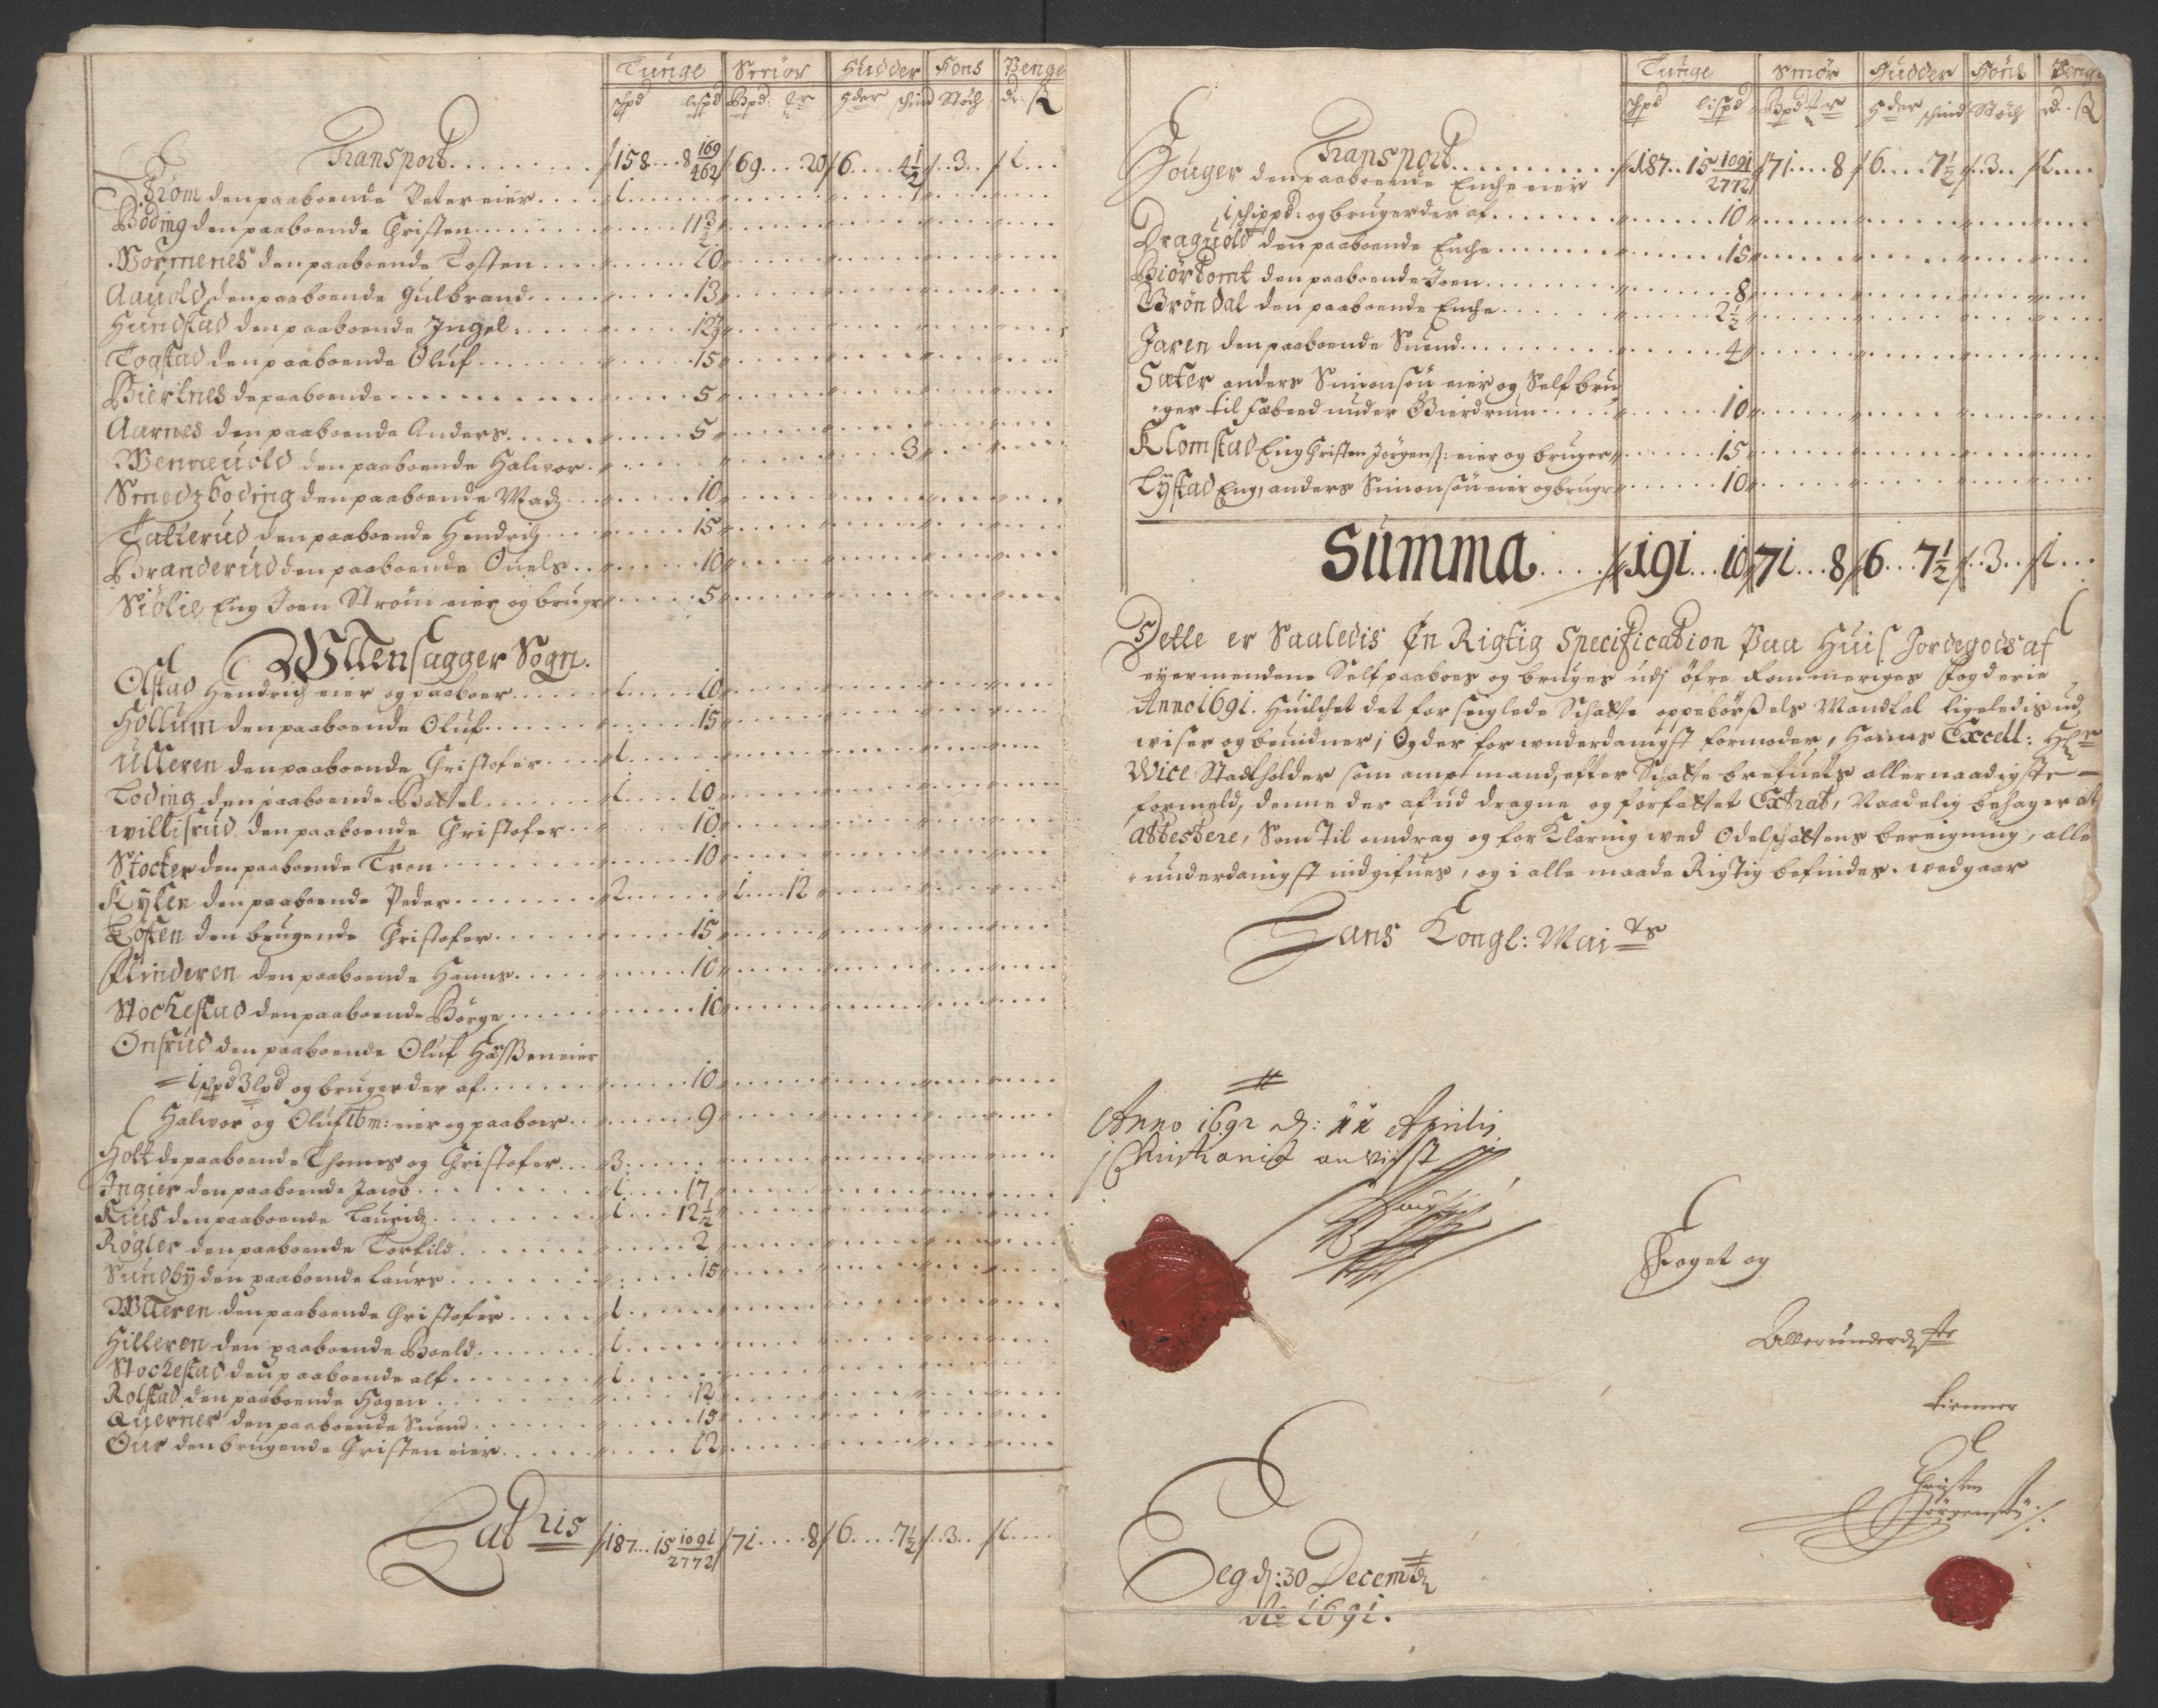 Tunge Smør Hudder Høns Penge
schpd lispd Bpd: hder schind Støch dr: ß
Transport . . . 158 . . 8 169/462 69 . . . 20 6 . . . 4 1/2 . . 3 . . 1 . . .
Strøm den paaboende Peter eier . . . 1 . . .
Böding den paaboende Christen . . . 11 3/2
Wormenes den paaboende Tosten . . . 10
Aauold den paaboende Gulbrand . . . 13
Hundstad den paaboende Ingel . . . 12
Togstad den paaboende Oluf . . . 15
Biertnes de paaboende . . . 5
Aarnes den paaboende Anders . . . 5
Wenneuold den paaboende Halwor . . . 3
Smedzböding den paaboende Madz . . . 10
Tatterud den paaboende Hendrich . . . 15
Branderud den paaboende Ouels . . . 10
Siölie Eng Joen Strøm eier og bruger . . . 5
Wllensagger Sogn.
Olstad Hendrich eier og paaboer . . . 1 . . . 10
Hollum den paaboende Oluf . . . 15
Ulleren den paaboende Christofer . . . 1
Loding den paaboende Bottel . . . 1 . . . 10
willisrud den paaboende Christofer . . . 10
Stocker den paaboende Tron . . . 10
Kylen den paaboende Peder . . . 2 . . . 1 . . . 12
Løsten den brugende Christofer . . . 15
Flinderen den paaboende Hanns . . . 10
Stochestad den paaboende Börge . . . 10
Onsrud den paaboende Oluf eier
1 schpd 3 lpd og bruger der af . . . 10
Halwor og Oluf ibm: eier og paaboer . . . 9
Holt de paaboende Thomes og Christofer . . . 3
Ingier den paaboende Jacob . . . 1 . . . 17
Kius den paaboende Lauridz . . . 1 . . . 12 1/2
Rögler den paaboende Torkild . . . 2
Sundby den paaboende Laurs . . . 15
Wlleren den paaboende Christofer . . . 1
Hilleren den paaboende Boeld . . . 1
Stochestad den paaboende alf . . . 1
Rolstad den paaboende Hagen . . . 12
Querner den paaboende Suend . . . 15
Our den brugende Christen eier . . . 12
Latris 187 . . . 15 1091/2772 71 . . . 8 6 . . . 7 1/2 . . 3 . . 1 . . .
Tunge Smør Hudder Høns Penge
schpd lispd Bpd hder schind Støch rd. ß
Transport . . . 187 . . 15 1091/2772 71 . . . 8 6 . . . 7 1/2 . . 3 . . 1 . . .
Houger den paaboende Enche eier
1 schippd: og bruger der af . . . 10
Draguold den paaboende Enche . . . 15
Biörtomt den paaboende Joen . . . 8
Bröndal den paaboende Enche . . . 2 1/2
Jaren den paaboende Suend . . . 4
Sæter anders Simonsøn eier og Self bru
ger til Fæbeed under Bierdrum . . . 10
Klomstad Eng Christen Jørgens: eier og bruger . . . 15
Tystad Eng, anders Simonsøn eier og bruger . . . 10
Summa . . . 191 . . . 10 71 . . . 8 6 . . . 7 1/2 . . 3 . . 1 . . .
Dette er Saaledis En Rigtig Specification Paa Huis Jordegods af
eyermendene Self paaboes og bruges udj öfre Rommeriges Fogderie
Anno 1691. Huilchet det for seiglede Schatte oppebörßels Mandtal ligeledis ud,
wiser og beuidner; Og der for underdanigst formoder, Hanns Excell: Hr
Wice Stadtholder som amptmand, efter Schatte brefuets allernaadigste
formeld, denne der af ud dragne og forfattet Extrat, Naadelig behager at
attestere, Som til andrag og for Klaring wed Odelschattens bereigning, alle
underdanigst indgifues, og i alle maade Rigtig befindes. wedgaar
Hans Kongl: Maits
Anno 1692 d: 22 Aprilis
Christiania anvist
Foget og
Allerunderdste
tienner
Christen
Jørgensøn
Eeg d: 30 Decemb
Ao 1691.